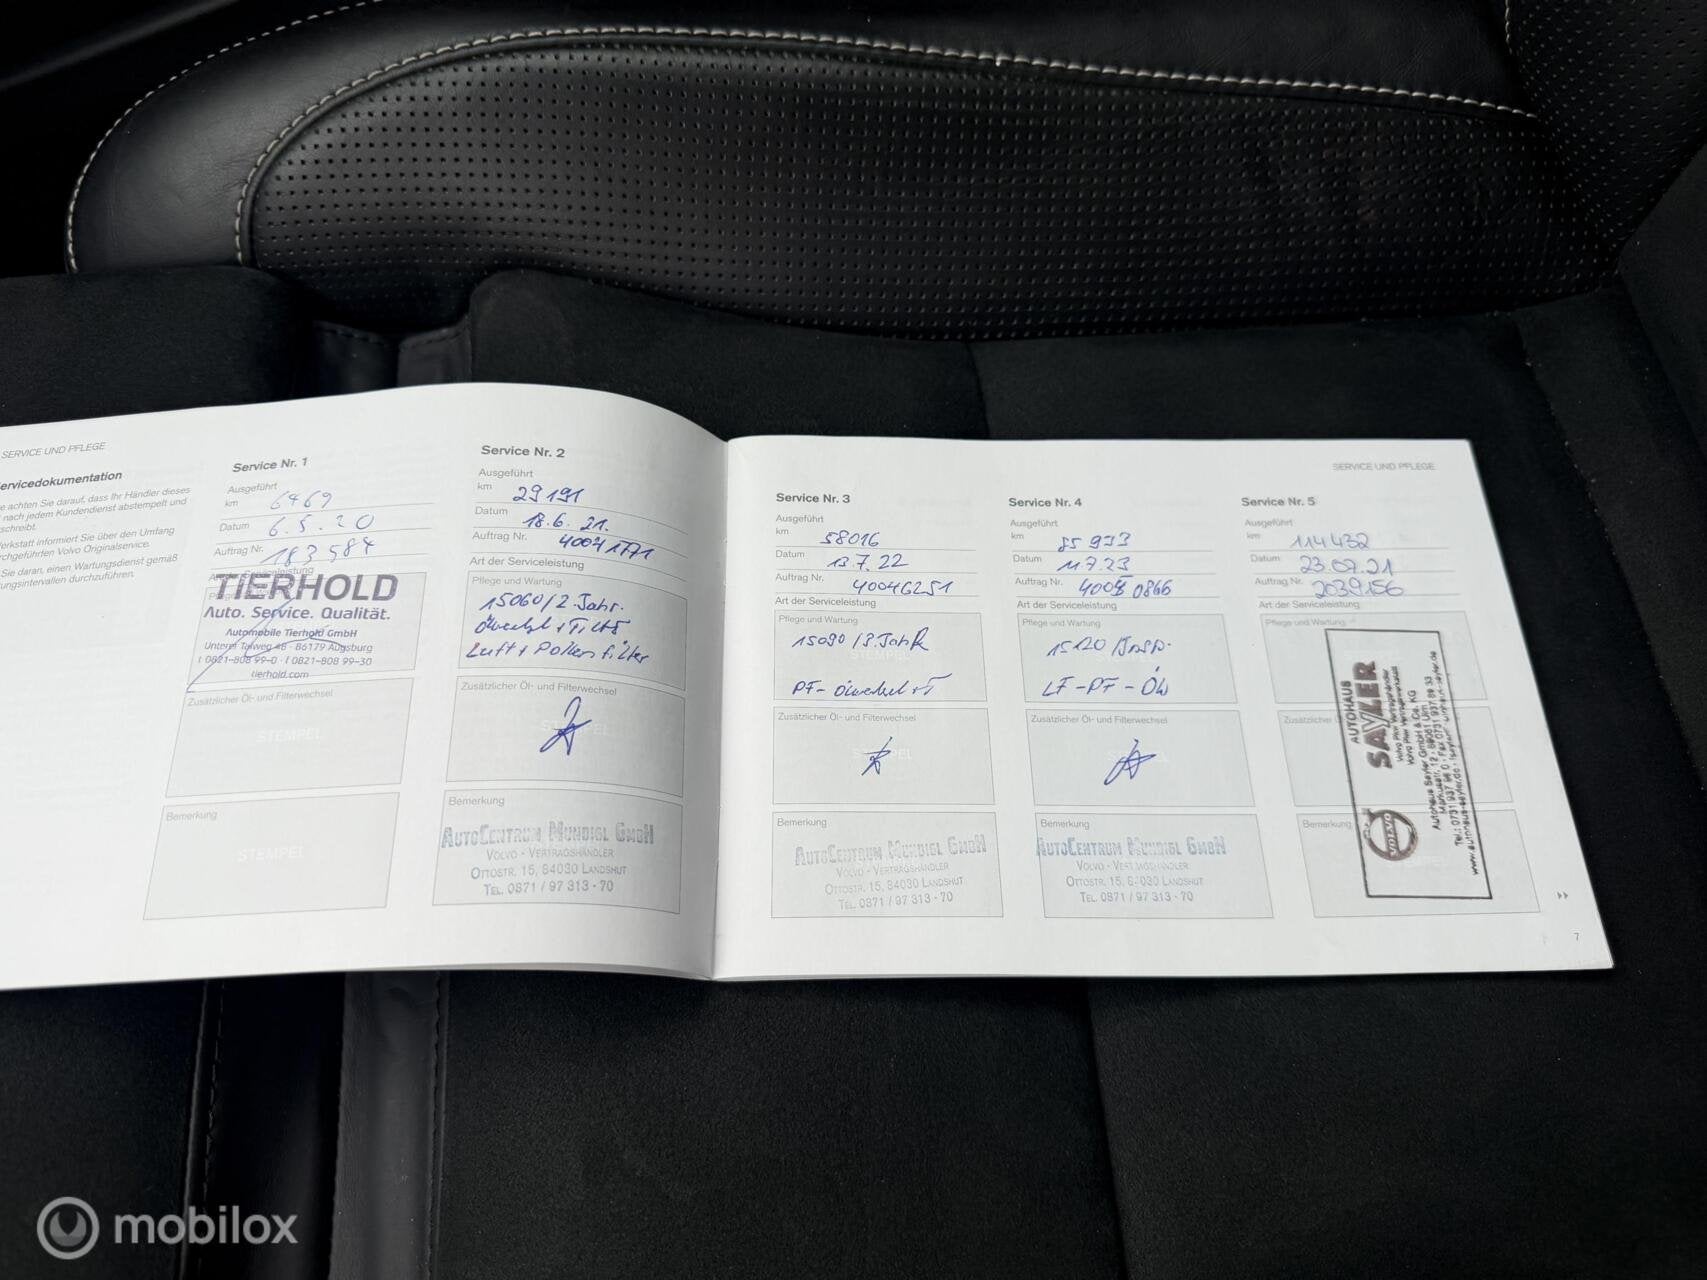 SERVICE UND PFLEGE
ervicedokumentation
e achten Sie darauf, dass Ihr Händler dieses
nach jedem Kundendienst abstempelt und
schreibt.
erkstatt informiert Sie über den Umfang
rchgeführten Volvo Originalservice.
Sie daran, einen Wartungsdienst gemäß
ungsintervallen durchzuführen.
Service Nr. 1
Ausgeführt
km 6469
Datum 6.5.20
Auftrag Nr. 183584
TIERHOLD
Auto. Service. Qualität.
Automobile Tierhold GmbH
Unterer Talweg 48 - 86179 Augsburg
t 0821-808 99-0 · f 0821-808 99-30
tierhold.com
Zusätzlicher Öl- und Filterwechsel
STEMPEL
Bemerkung
STEMPEL
Service Nr. 2
Ausgeführt
km 29191
Datum 18.6.21.
Auftrag Nr.
Art der Serviceleistung
Pflege und Wartung
15060/2.Jahr.
Luft + Pollenfilter
Zusätzlicher Öl- und Filterwechsel
Bemerkung
AUTOCENTRUM MUNDIGL GMBH
VOLVO - VERTRAGSHÄNDLER
OTTOSTR. 15, 84030 LANDSHUT
TEL. 0871 / 97 313 - 70
SERVICE UND PFLEGE
Service Nr. 3
Ausgeführt
km 58016
Datum 13.7.22
Auftrag Nr. 40046251
Art der Serviceleistung
Pflege und Wartung
STEMPEL
15090 /3.Jahr
PF-
Zusätzlicher Öl- und Filterwechsel
Bemerkung
AUTOCENTRUM MUNDIGL GMBH
VOLVO - VERTRAGSHÄNDLER
OTTOSTR. 15, 84030 LANDSHUT
TEL. 0871 / 97 313 - 70
Service Nr. 4
Ausgeführt
km 85933
Datum 11.7.23
Auftrag Nr.
Art der Serviceleistung
Pflege und Wartung
15120/Insp.
LF-PF-ÖW
Zusätzlicher Öl- und Filterwechsel
Bemerkung
AUTOCENTRUM MUNDIGL GMBH
OTTOSTR. 15, 84030 LANDSHUT
TEL. 0871 / 97 313 - 70
Service Nr. 5
Ausgeführt
km 114432
Datum
Auftrag Nr. 2039156
Art der Serviceleistung
Pflege und Wartung
AUTOHAUS
SAYLER
Volvo Pkw Vertragshändler
Volvo Pkw Vertragswerkstatt
Autohaus Sayler GmbH & Co. KG
VOLVO
Bemerkung
7
mobilox